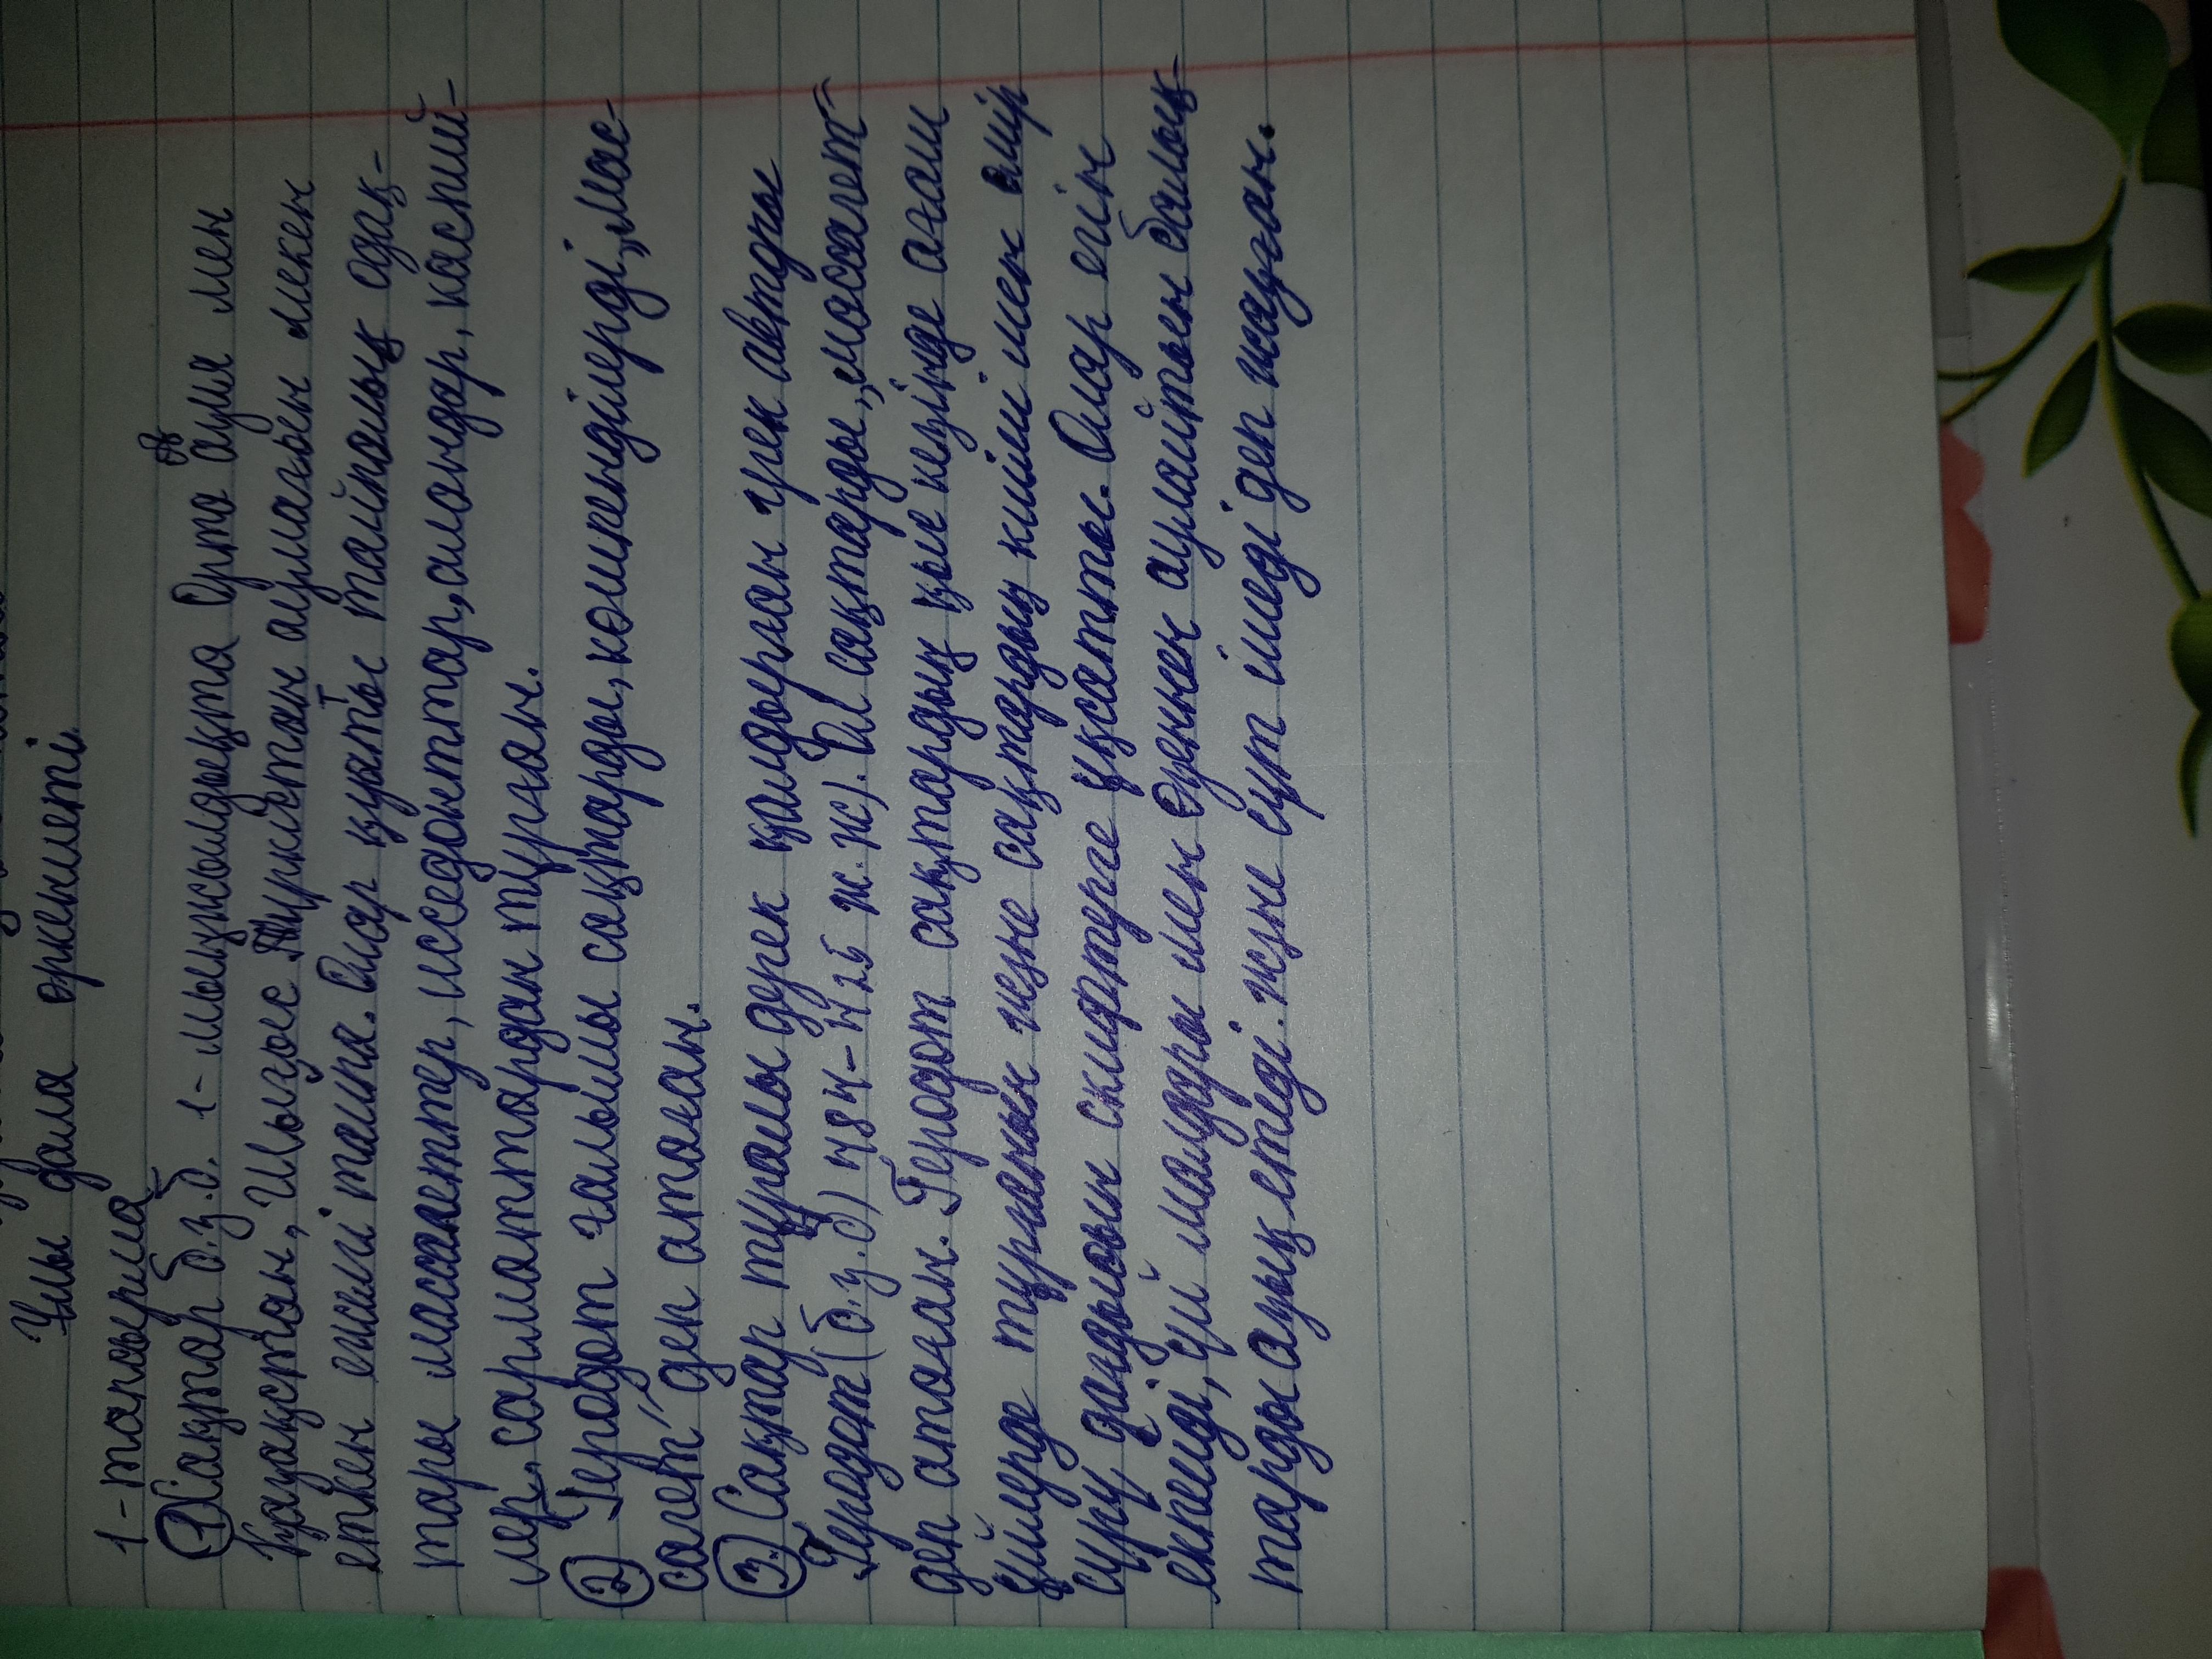 Ұлы дала өркениеті.
1-тапсырма
① Сақтар б.з.б. 1-мыңжылдықта Орта Азия мен
Қазақстан, Шығыс Түркістан аумағын мекен
еткен ежелгі тайпа. Олар қуатты тайпалық одақ-
тары массагеттер, исседонттар, аландар, каспий-
лер, сарматтардан тұрған.
② Геродот ғалымы сақтарды, көшпенділерді, „Мас-
сагет" деп атаған.
③ Сақтар туралы дерек қалдырған грек авторы
Геродот (б.з.б) 484-425 ж.ж). Ол сақтарды „массагет"
деп атаған. Геродот сақтардың қыс кезінде ағаш
үйлерде тұрғанын және сақтардың киімі мен өмір
сүру дағдысын скифтерге ұқсатты. Олар егін
екпейді, үй малдры мен Өзеннен аулайтын балық-
тарды азық етеді. және сүт ішеді деп жазған.